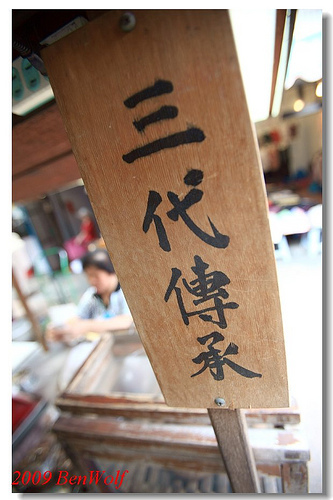 三代傳承
2009 BenWolf